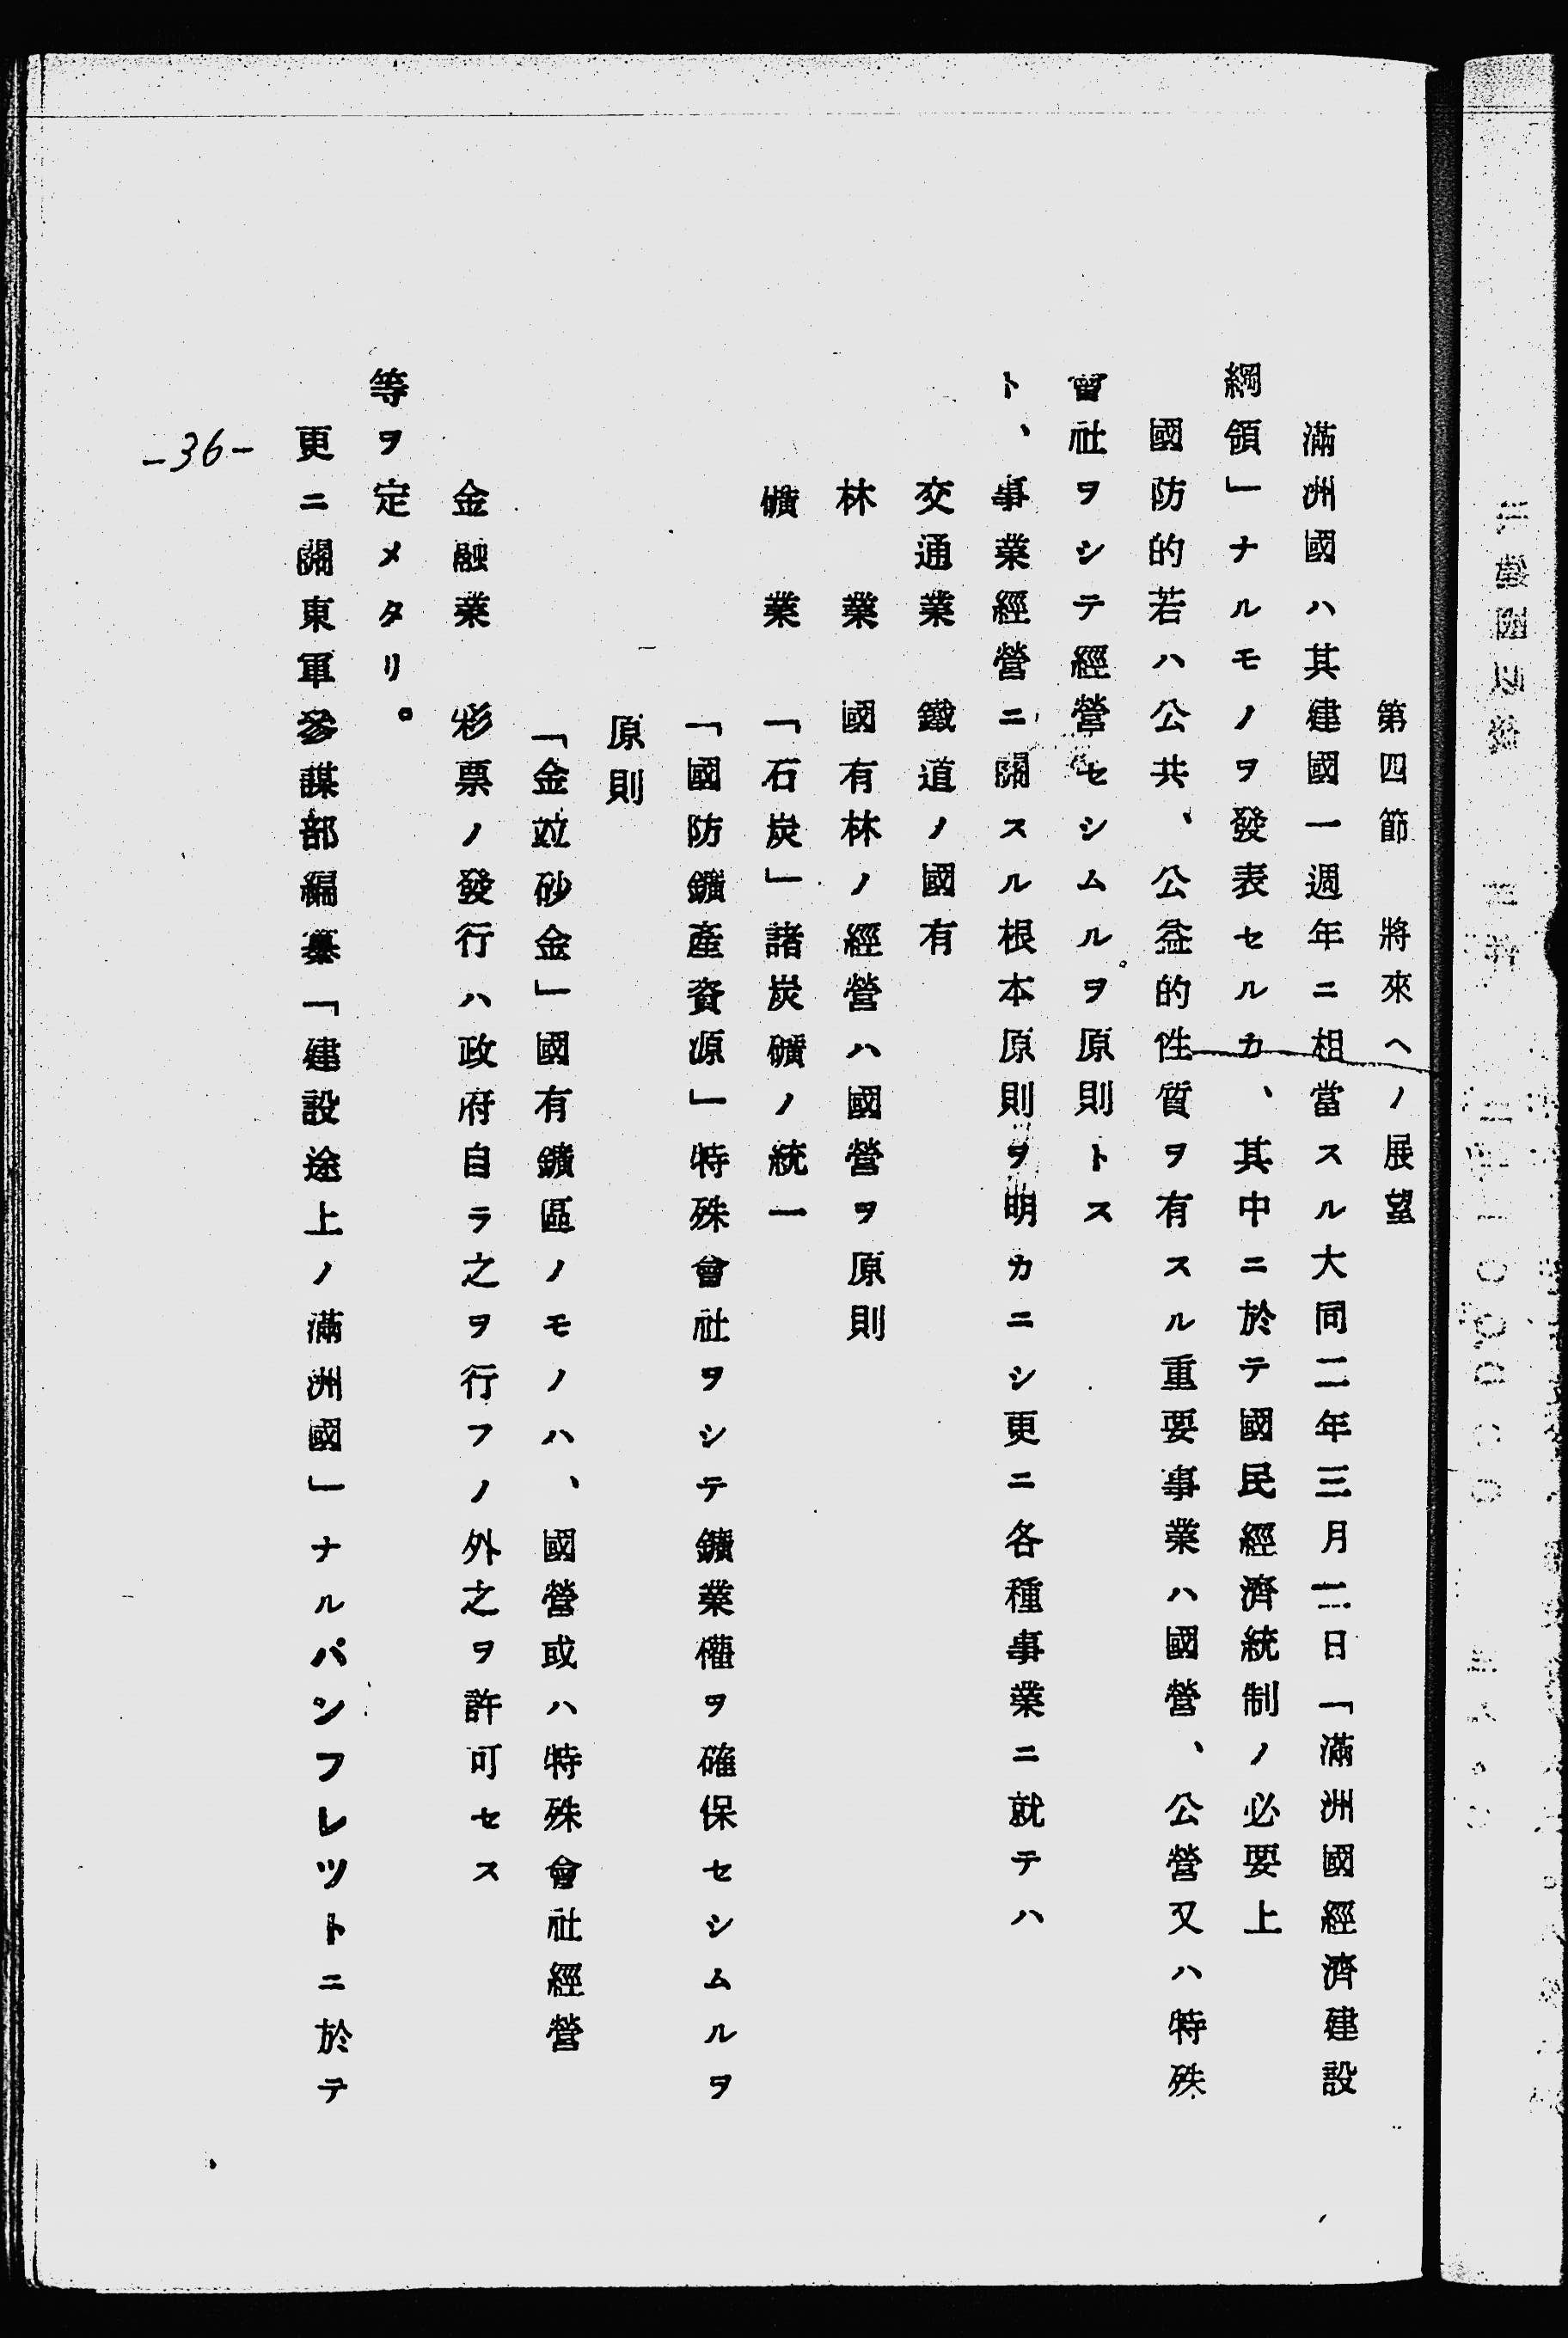 第四節　將來ヘノ展望
滿洲國ハ其建國一週年ニ相當スル大同二年三月一日「滿洲國經濟建設
綱領」ナルモノヲ發表セルカ、其中ニ於テ國民經濟統制ノ必要上
國防的若ハ公共、公益的性質ヲ有スル重要事業ハ國營、公營又ハ特殊
會社ヲシテ經營セシムルヲ原則トス
ト、事業經營ニ關スル根本原則ヲ明カニシ更ニ各種事業ニ就テハ
交通業　鐵道ノ國有
林　業　國有林ノ經營ハ國營ヲ原則
礦　業　「石炭」諸炭礦ノ統一
「國防鑛產資源」特殊會社ヲシテ鑛業權ヲ確保セシムルヲ
原則
「金竝砂金」國有鑛區ノモノハ、國營或ハ特殊會社經營
金融業　彩票ノ發行ハ政府自ラ之ヲ行フノ外之ヲ許可セス
等ヲ定メタリ。
更ニ關東軍參謀部編纂「建設途上ノ滿洲國」ナルパンフレツトニ於テ
-36-